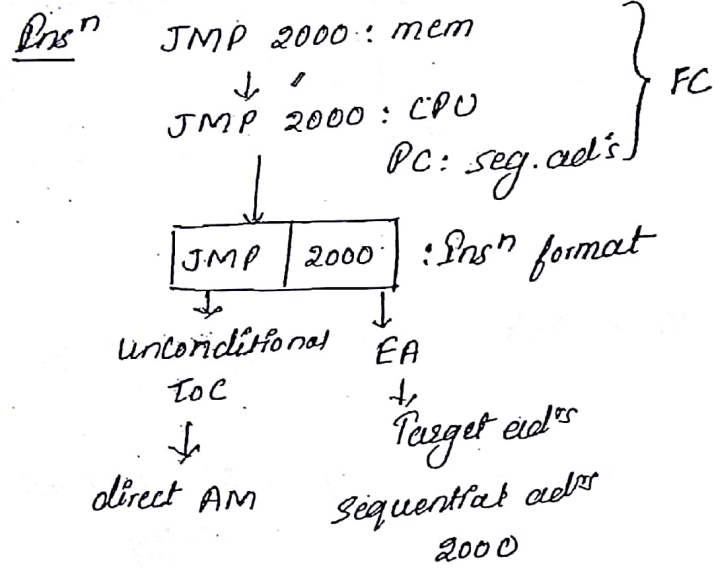 Insⁿ JMP 2000 : mem
JMP 2000 : CPU
PC: seq. ad's
FC
JMP 2000 : Insⁿ format
unconditional EA
ToC
Target ad^rs
direct AM sequential ad^rs
2000